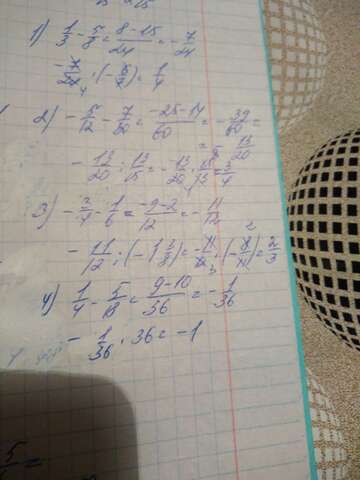 1) 1/3 - 5/8 = 8-15/24 = - 7/24
- 7/24 · (- 6/7) = 1/4
2) - 5/12 - 7/30 = -25-14/60 = - 39/60 =
= - 13/20
- 13/20 : 13/15 = - 13/20 · 15/13 = 3/4
3) - 3/4 - 1/6 = -9-2/12 = - 11/12
- 11/12 : (-1 3/8) = - 11/12 · (- 8/11) = 2/3
4) 1/4 - 5/18 = 9-10/36 = - 1/36
- 1/36 · 36 = -1